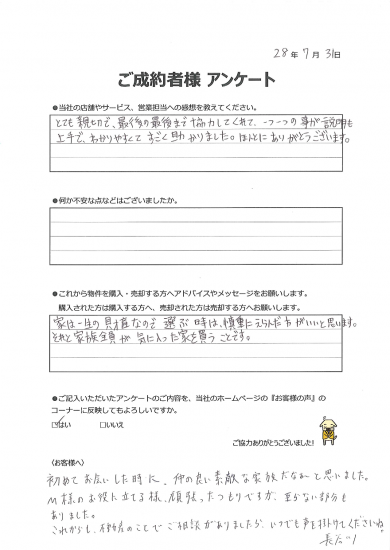 28年7月31日
ご成約者様 アンケート
●当社の店舗やサービス、営業担当への感想を教えてください。
とても親切で、最後の最後まで協力してくれて、一つ一つの事が説明も
上手で、わかりやすくて すごく助かりました。ほんとにありがとうございます。
●何か不安な点などはございましたか。
●これから物件を購入・売却する方へアドバイスやメッセージをお願いします。
購入された方は購入する方へ、売却された方は売却する方へお願いします。
家は一生の財産なので 選ぶ時は、慎重にえらんだ方がいいと思います。
それと家族全員が 気に入った家を買うことです。
●ご記入いただいたアンケートのご内容を、当社のホームページの『お客様の声』の
コーナーに反映してもよろしいですか。
☑はい □いいえ
ご協力ありがとうございました!
《お客様へ》
初めてお会いした時に、仲の良い素敵な家族だなぁと思いました。
M様のお役に立てる様、頑張ったつもりですが、至らない部分も
ありました。
これからも、不動産のことでご相談がありましたら、いつでも声を掛けてくださいね。
長谷川